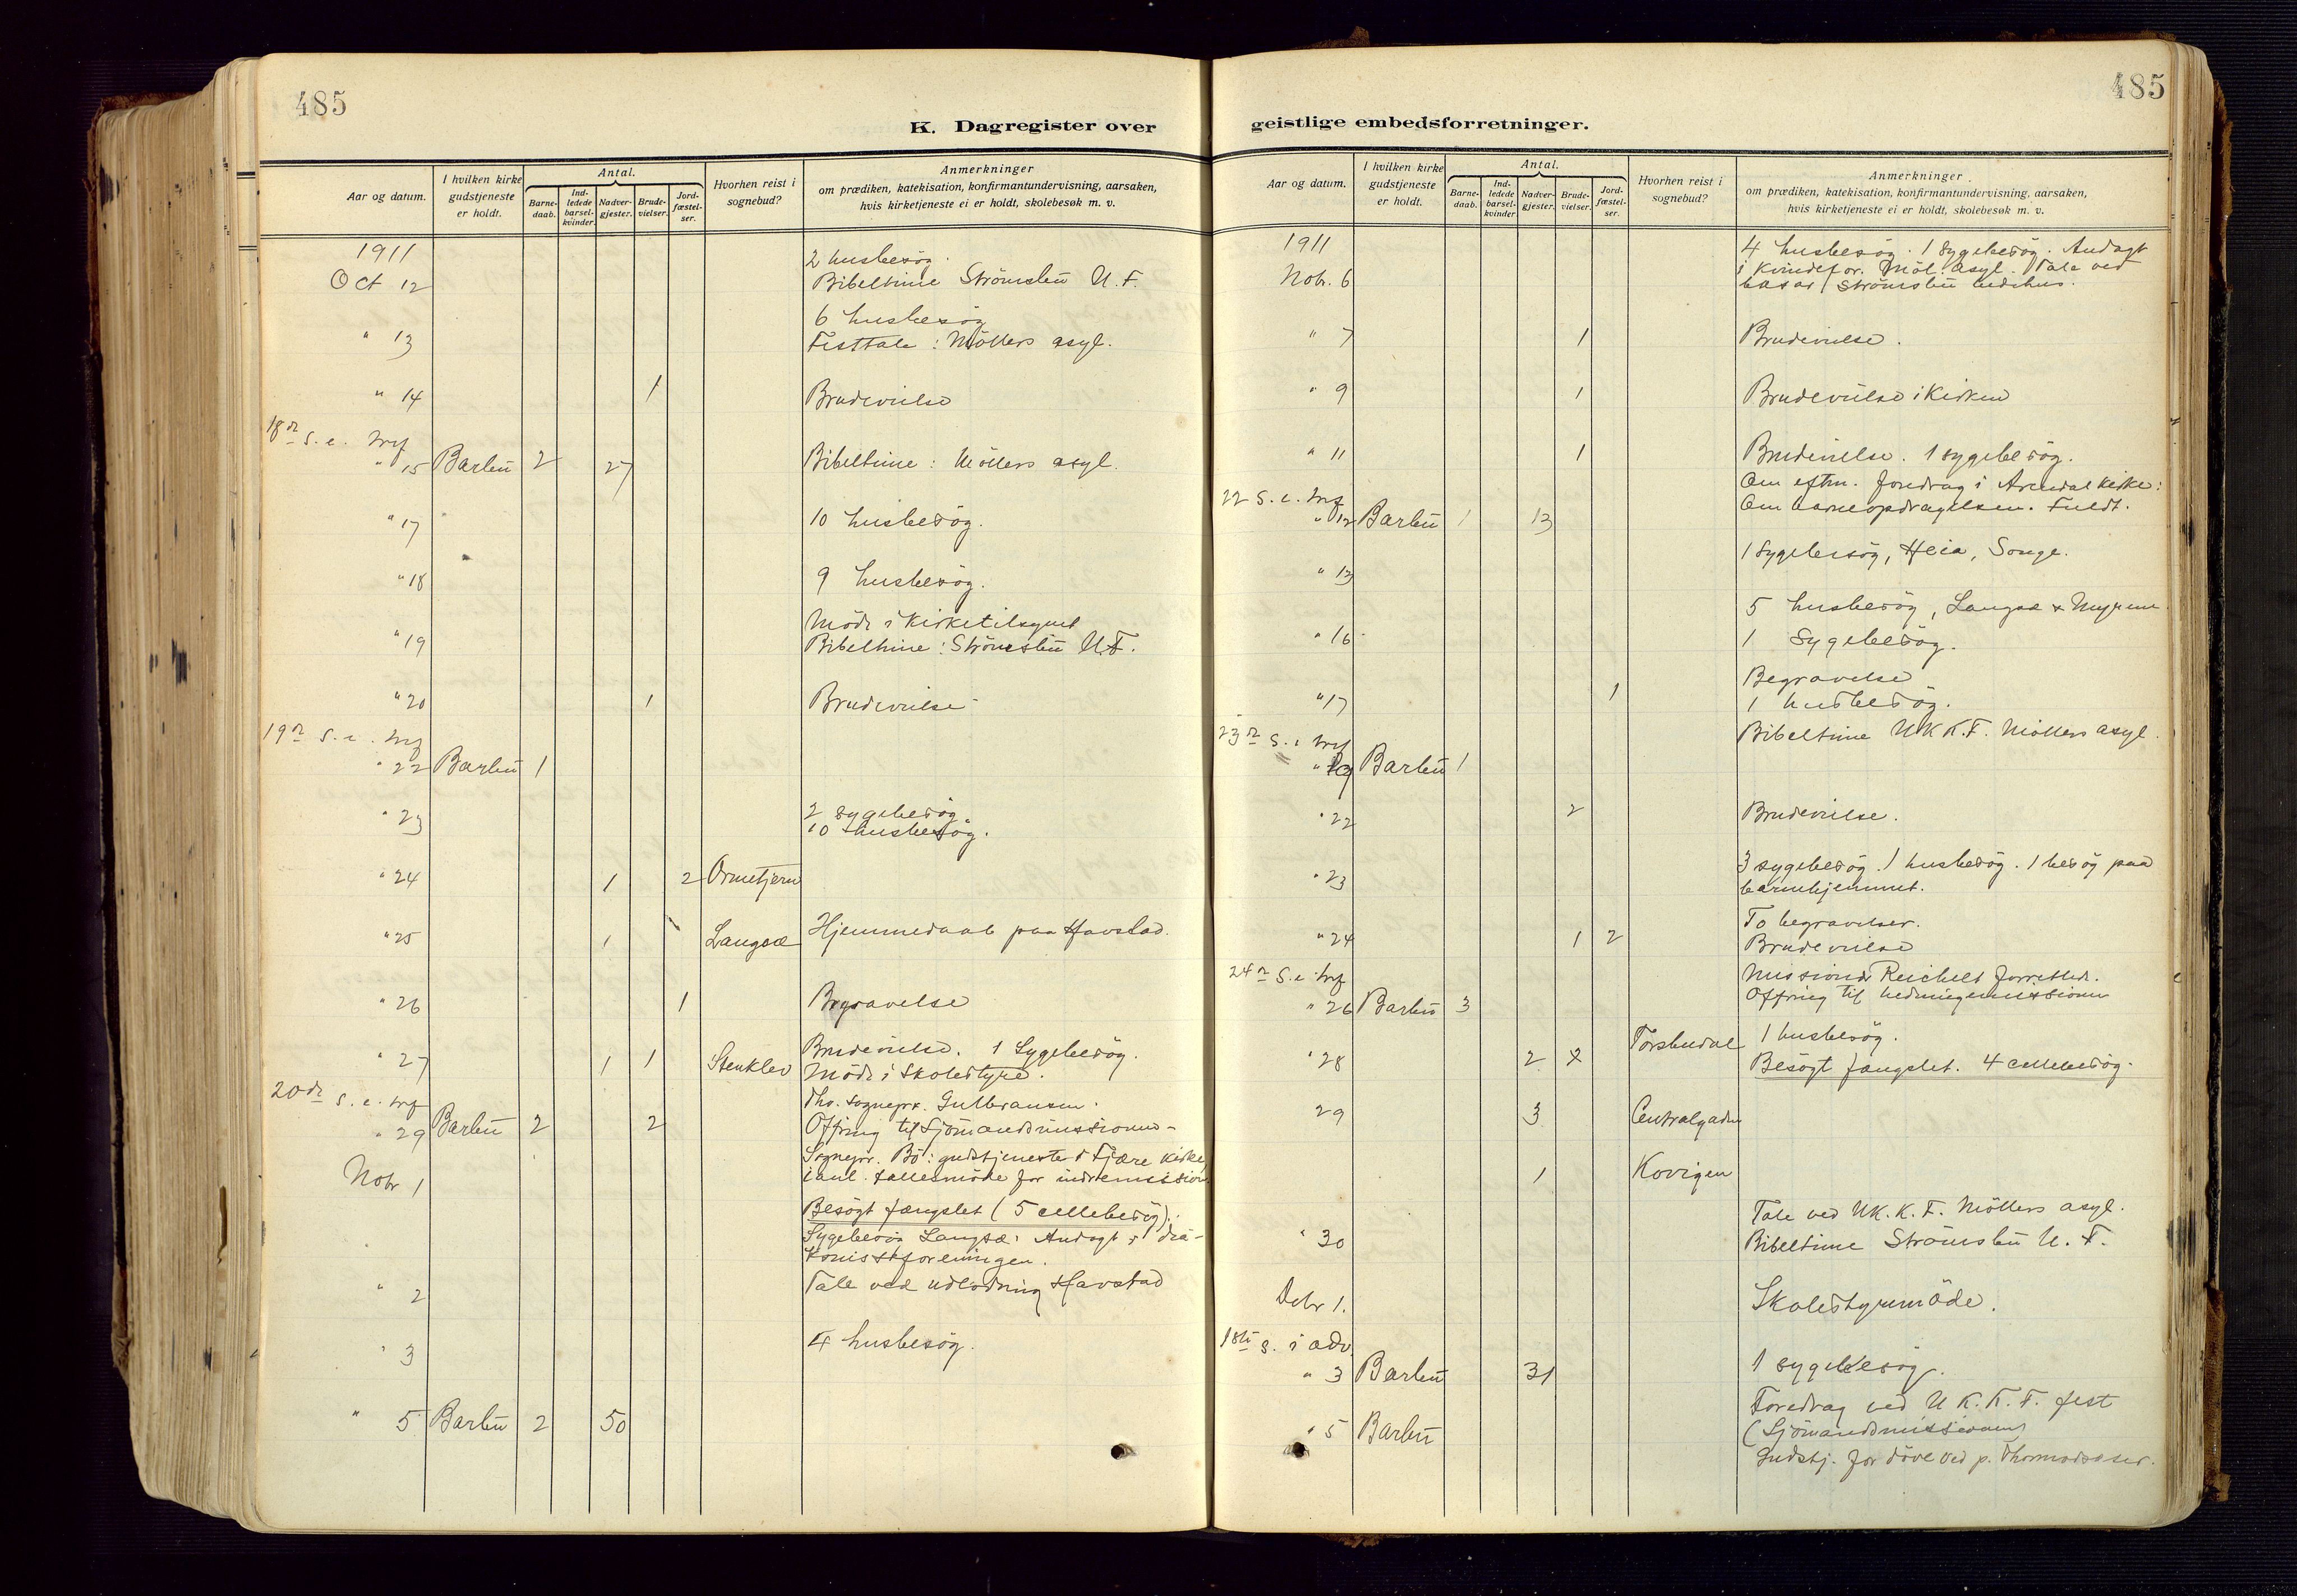 485
K. Dagregister over
Aar og datum.
I hvilken kirke gudstjeneste er holdt.
Antal.
Barne-daab.
Ind-ledede barsel-kvinder.
Nadver-gjester.
Brude-vielser.
Jord-fæstel-ser.
Hvorhen reist i sognebud?
Anmerkninger
om prædiken, katekisation, konfirmantundervisning, aarsaken,
hvis kirketjeneste ei er holdt, skolebesøk m. v.
1911
2 husbesøg.
Oct 12 Bibeltime Strömsbu U. F.
6 husbesøg
" 13 Festtale: Möllers asyl.
" 14 1 Brudevielse
18de S. e. trf
" 15 Barbu 2 27 Bibeltime: Möllers asyl.
" 17 10 husbesøg.
" 18 9 husbesøg.
Möde i Kirketilsynet
" 19 Bibeltime: Strömsbu U.F.
" 20 1 Brudevielse
19de S. e. trf
" 22 Barbu 1
2 sygebesøg.
" 23 10 husbesøg.
" 24 1 2 Ormetjern
" 25 1 Langsæ Hjemmedaab paa Havstad.
" 26 1 Begravelse
Brudevielse. 1 Sygebesøg.
" 27 1 1 Stenklev Möde i Skolestyre.
20de S. e. trf
Sognepr. Gulbransen.
" 29 Barbu 2 2 Offring til Sjömandsmissionen
Sognepr. Bö: gudstjeneste i Fjære kirke
Nobr 1 i anl. fællesmöde for indremission.
Besögt fængslet (5 cellebesøg).
Sygebesøg Langsæ. Andagt i dia-
konissforeningen.
" 2 Tale ved udlodning Havstad
" 3 4 husbesøg.
" 5 Barbu 2 50
485
geistlige embedsforretninger.
Aar og datum.
I hvilken kirke gudstjeneste er holdt.
Antal.
Barne-daab.
Ind-ledede barsel-kvinder
Nadver-gjester.
Brude-vielser.
Jord-fæstel-ser.
Hvorhen reist i sognebud?
Anmerkninger
om prædiken, katekisation, konfirmantundervisning, aarsaken,
hvis kirketjeneste ei er holdt, skolebesøk m. v.
1911
4 husbesøg. 1 sygebesøg. Andagt
i Kvindefor. Möl. asyl. Tale ved
Nobr. 6 basar Strömsbu bedehus.
" 7 1 Brudevielse.
" 9 1 Brudevielse i Kirken
" 11 1 Brudevielse. 1 sygebesøg.
Om eftm. foredrag i Arendal kirke:
22 S. e. trf
" 12 Barbu 1 13 Om barneopdragelsen. Fuldt.
1 Sygebesøg, Heia, Songe.
" 13
5 husbesøg, Langsæ & Myrene
" 16 1 Sygebesøg.
Begravelse
" 17 1 1 husbesøg.
Bibeltime U.K.K.F. Möllers asyl.
23de S. e trf
" 19 Barbu 1
" 22 2 Brudevielse.
3 sygebesøg. 1 husbesøg. 1 besøg paa
" 23 barnehjemmet.
To begravelser.
" 24 1 2 Brudevielse
24de S. e. trf
Missionær Reichelt forrettede.
" 26 Barbu 3 Offring til hedningemissionen
1 husbesøg.
" 28 2 2 Torsbudal Besögt fængslet. 4 cellebesøg.
29 3 Centralgaden
1 Kovigen
Tale ved U.K.K.F. Möllers asyl.
" 30 Bibeltime Strömsbu U. F.
Debr 1. Skolestyremöde.
1ste s. i adv.
" 3 Barbu 31 1 sygebesøg.
Foredrag ved U K. K. F. fest
" 5 Barbu (Sjömandsmissionen)
Gudstj. for döve ved p.